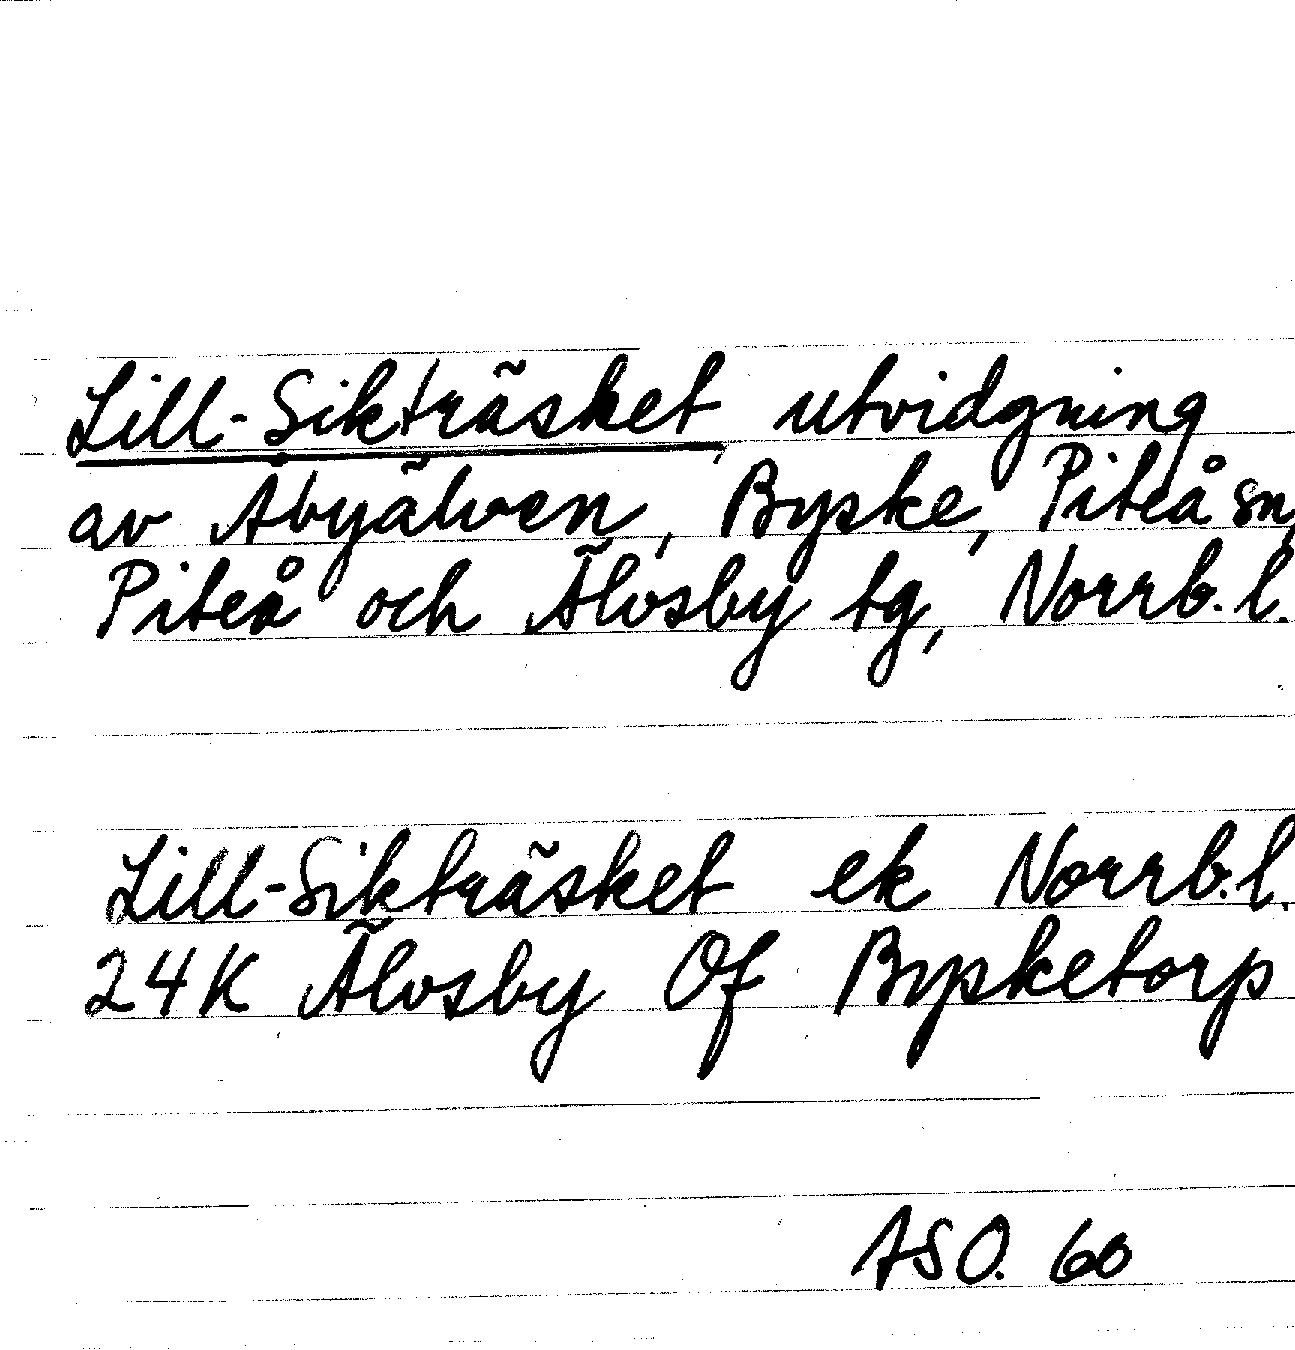 Lill-Sikträsket utvidgning
av Åbyälven, Byske, Piteå sn,
Piteå och Älvsby tg, Norrb.l.
Lill-Sikträsket ek Norrb.l.
24K Älvsby Of Bysketorp
ASO. 60